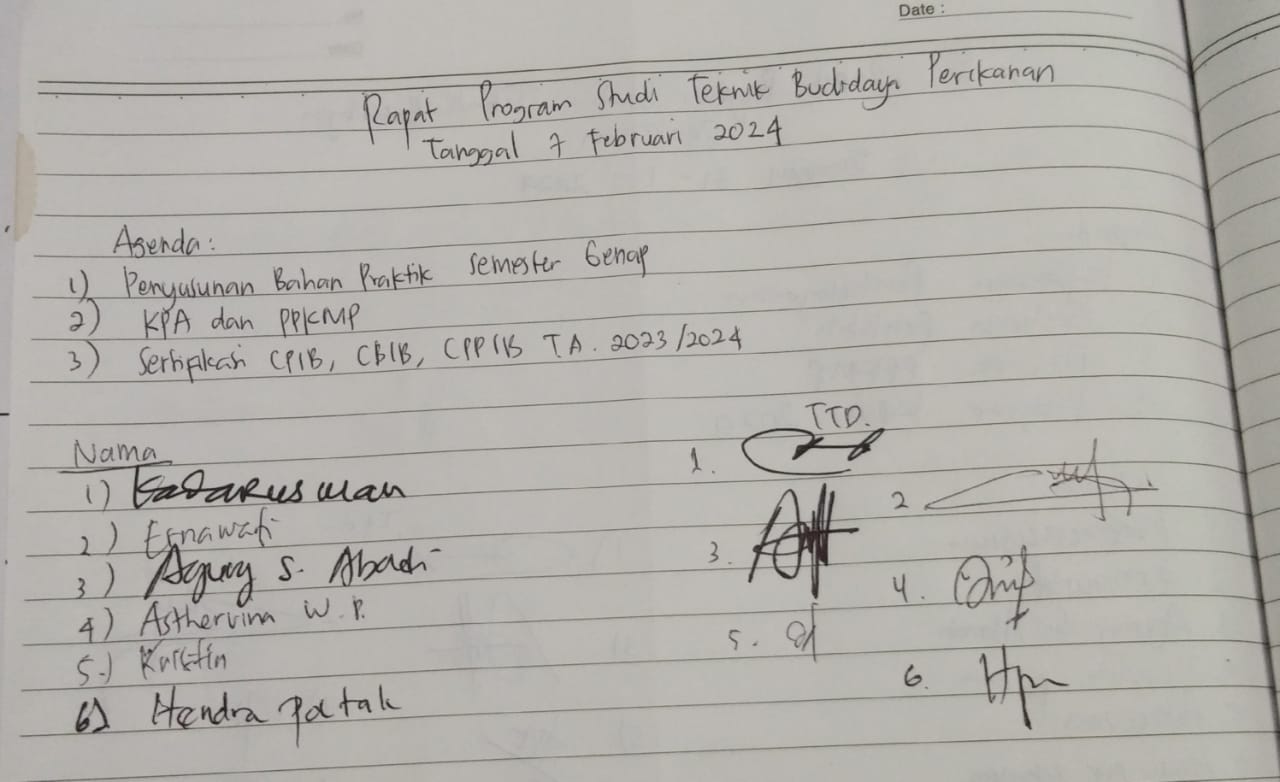 Date :
Rapat Program Studi Teknik Budidaya Perikanan
Tanggal 7 Februari 2024
Agenda :
1) Penyusunan Bahan Praktik Semester Genap
2) KPA dan PPKMP
3) Sertifikasi CPIB, CBIB, CPPIB T.A. 2023/2024
Nama TTD.
1) Kadarusman 1.
2) Ernawati 2
3) Agung S. Abadi 3.
4) Asthervina W.P. 4.
5.) Kristin 5.
6) Hendra Patak 6.